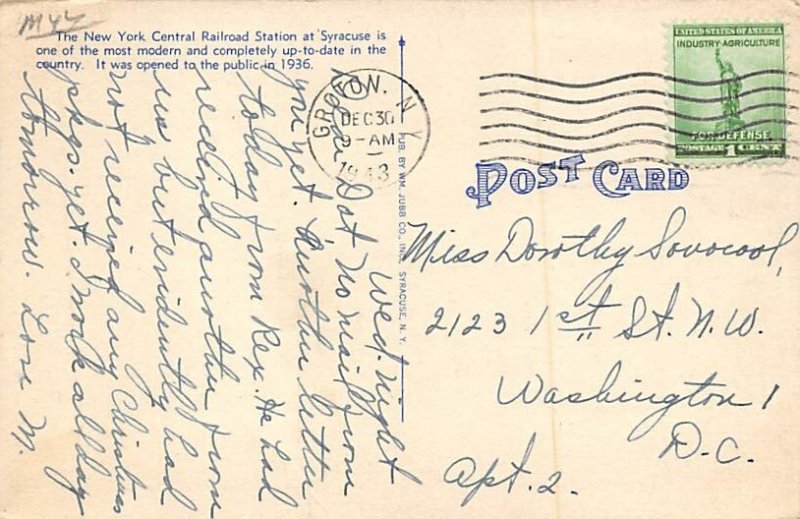 M44
The New York Central Railroad Station at Syracuse is
one of the most modern and completely up-to-date in the
country. It was opened to the public in 1936.
GROTON, N.Y.
DEC 30
9-AM
1943
UNITED STATES OF AMERICA
INDUSTRY-AGRICULTURE
FOR DEFENSE
POSTAGE 1 CENT
POST CARD
PUB. BY WM. JUBB CO., INC., SYRACUSE, N. Y.
Wed. Night
Dear Dot No mail from
you yet. Another letter
today from Rex. He had
received another from
me but evidently had
not received any Christmas
pkgs. yet. I work all day
tomorrow. Love M.
Miss Dorothy Sovocool,
2123 1st St. N.W.
Washington 1
D.C.
Apt. 2.